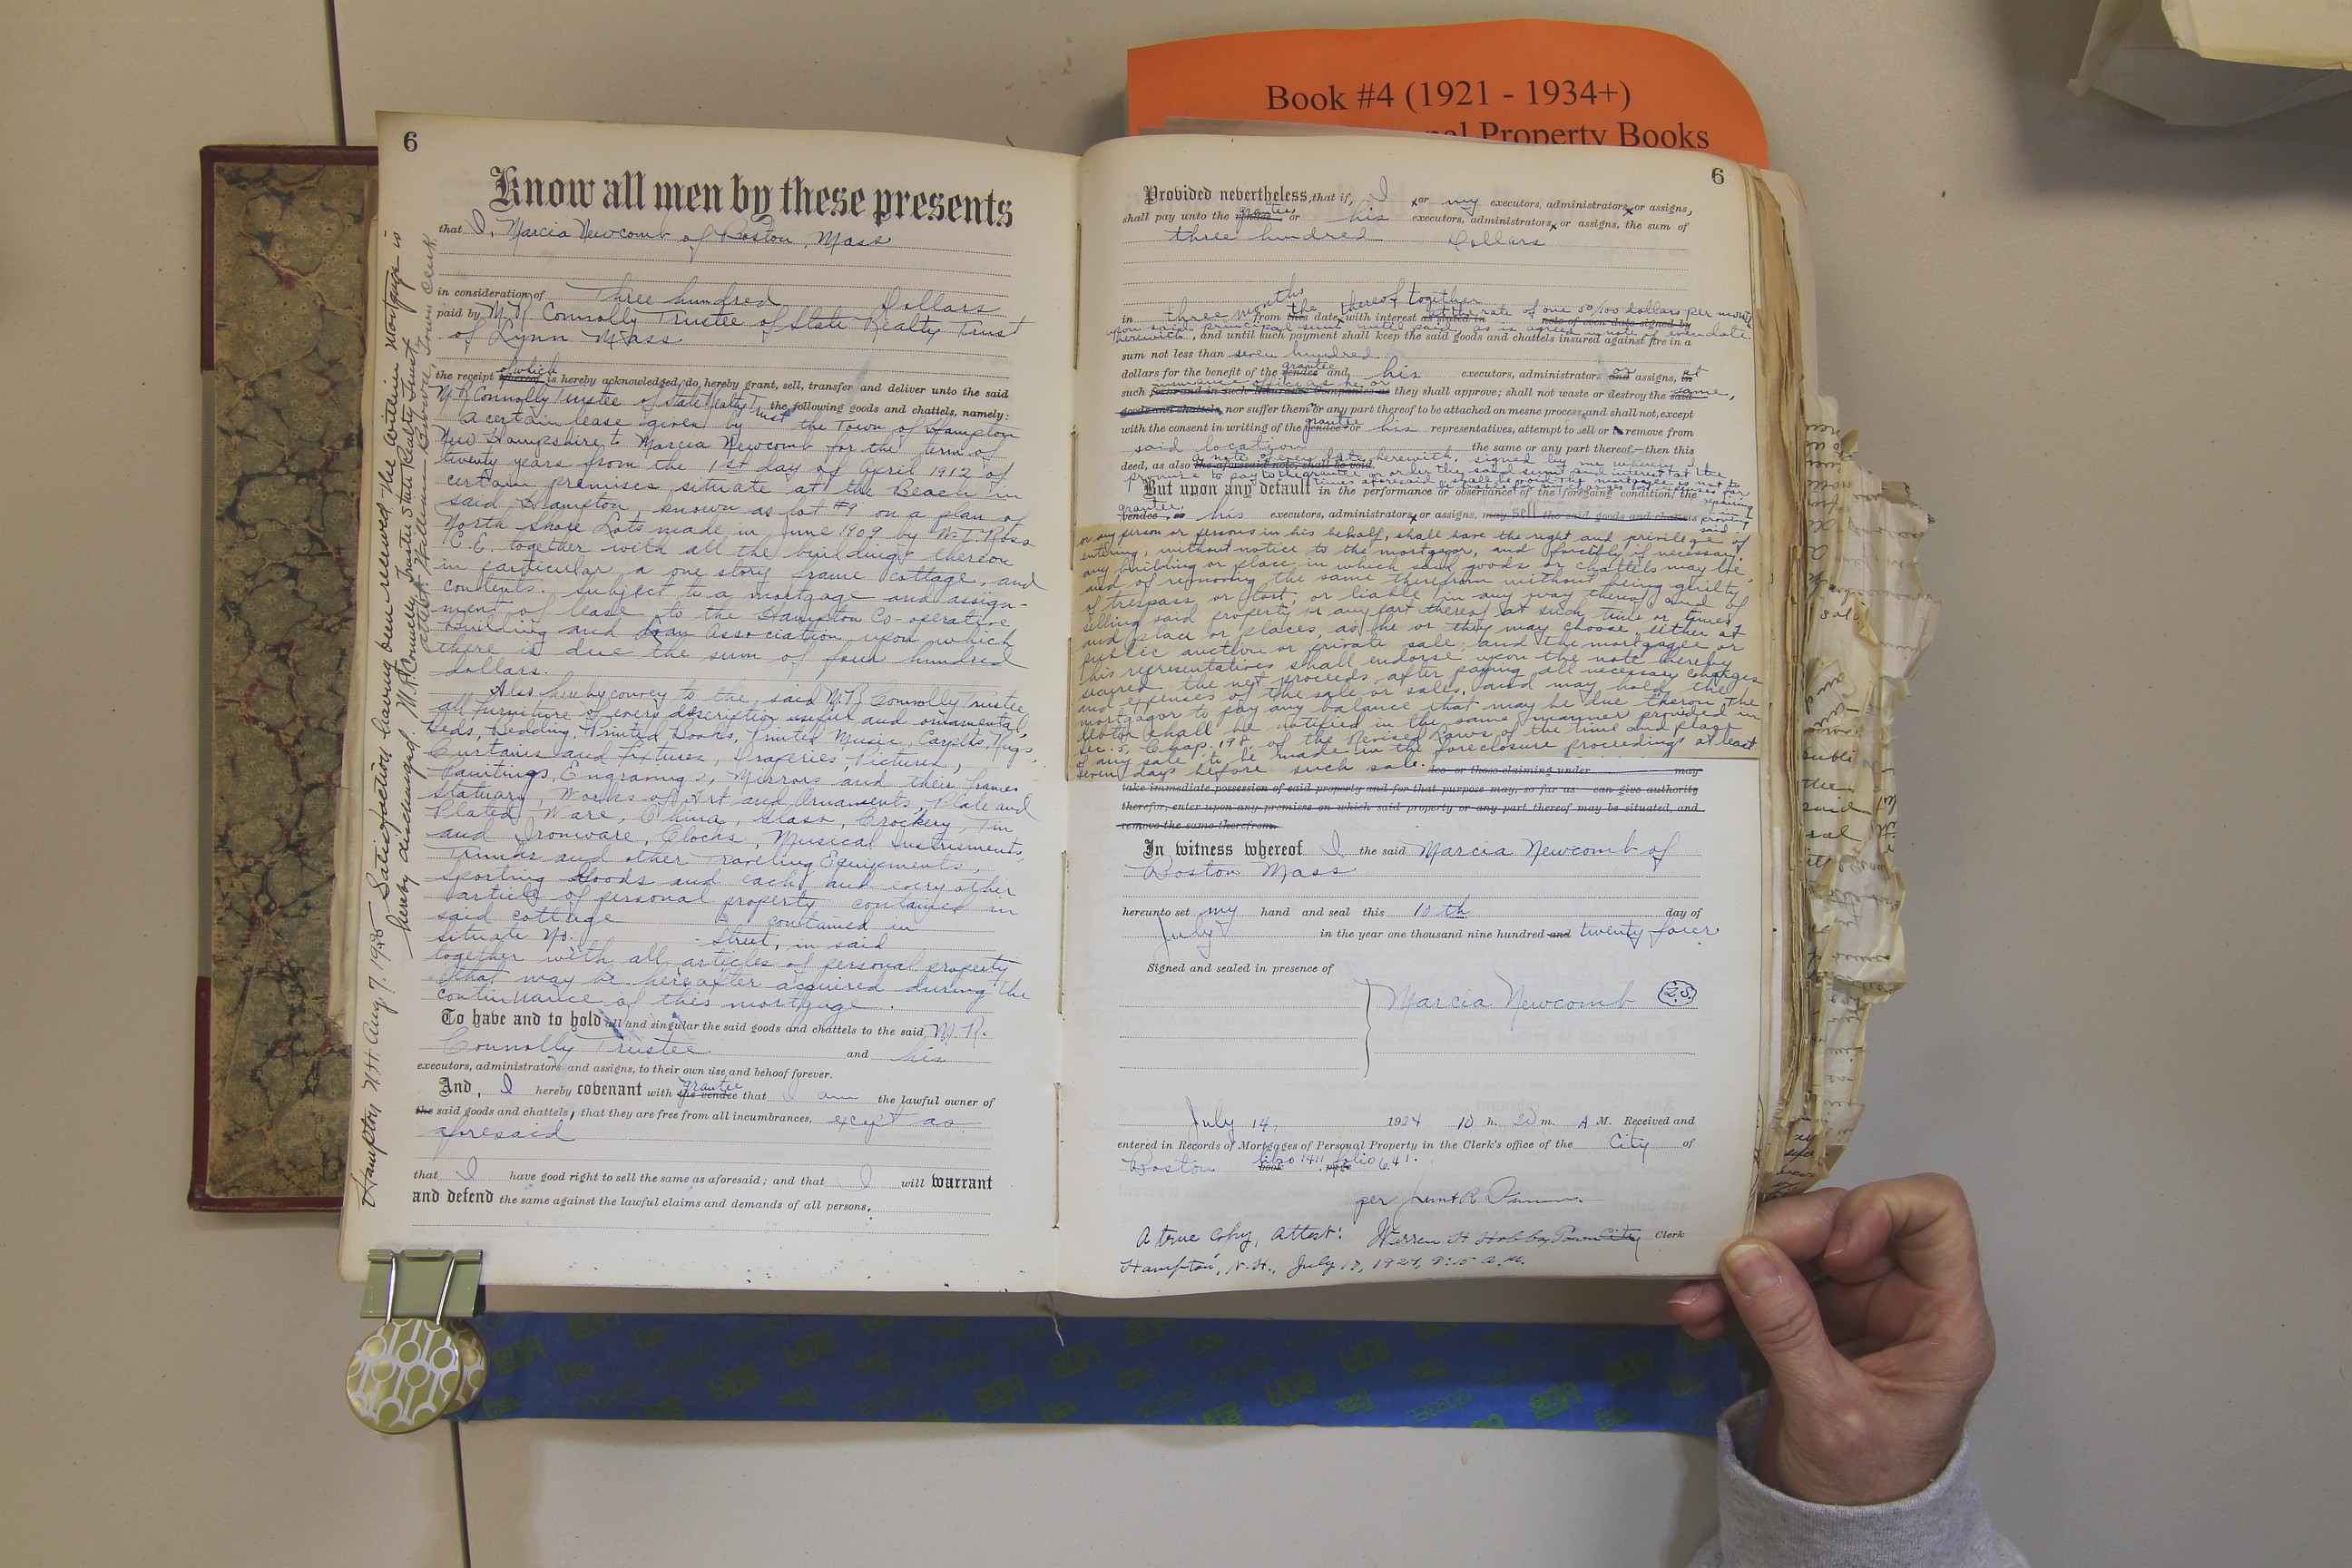 Book #4 (1921 - 1934+)
nal Property Books
6
Know all men by these presents
that I, Marcia Newcomb of Boston, Mass
in consideration of Three hundred Dollars
paid by M. R. Connolly Trustee of State Realty Trust
of Lynn Mass
of which
the receipt whereof is hereby acknowledged, do, hereby grant, sell, transfer and deliver unto the said
M. R. Connolly Trustee of State Realty Trust the following goods and chattels, namely:
A certain lease given by the Town of Hampton
New Hampshire to Marcia Newcomb for the term of
twenty years from the 1st day of April 1912 of
certain premises situate at the Beach in
said Hampton, known as lot #9 on a plan of
North Shore Lots made in June 1909 by W. T. Ross
C. E. together with all the buildings thereon
in particular a one story frame cottage, and
contents. Subject to a mortgage and assign-
ment of lease to the Hampton Co-operative
Building and Loan Association upon which
there is due the sum of four hundred
dollars.
Also hereby convey to the said M. R. Connolly Trustee
all furniture of every description useful and ornamental,
Beds, Bedding, Printed Books, Printed Music, Carpets, Rugs,
Curtains and fixtures, Draperies Pictures,
Paintings, Engravings, Mirrors and their frames
Statuary, Works of Art and Ornaments, Plate and
Plated Ware, China, Glass, Crockery, Tin
and Ironware, Clocks, Musical Instruments,
Trunks and other Traveling Equipments,
Sporting Goods and each and every other
article of personal property contained in
said cottage contained in
situate No. Street, in said
together with all articles of personal property
that may be hereafter acquired during the
continuance of this mortgage.
To have and to hold all and singular the said goods and chattels to the said M. R.
Connolly Trustee and his
executors, administrators and assigns, to their own use and behoof forever.
grantee
And, I hereby covenant with the vendee that I am the lawful owner of
the said goods and chattels, that they are free from all incumbrances, except as
aforesaid
that I have good right to sell the same as aforesaid; and that I will warrant
and defend the same against the lawful claims and demands of all persons.
Hampton N.H. Aug. 7. 1925 Satisfaction having been received the within mortgage is
hereby discharged. M. R. Connolly, Trustee State Realty Trust
attest: William Brown, Town Clerk
6
Provided nevertheless, that if, I or my executors, administrators, or assigns,
grantee
shall pay unto the vendee or his executors, administrators, or assigns, the sum of
three hundred Dollars
months thereof together
in three from this the date, with interest as stated in at the rate of one 50/100 dollars per month
note of even date signed by
upon said principal sum until paid, as is agreed in note of even date
herewith, and until such payment shall keep the said goods and chattels insured against fire in a
sum not less than seven hundred
grantee
dollars for the benefit of the vendee and his executors, administrators and or assigns, in at
insurance office as he or
such form and in such Insurance Companies as they shall approve; shall not waste or destroy the said same,
goods and chattels, nor suffer them or any part thereof to be attached on mesne process, and shall not, except
grantee
with the consent in writing of the vendee or his representatives, attempt to sell or to remove from
said location the same or any part thereof—then this
a note of even date herewith, signed by me whereby I
deed, as also the aforesaid note, shall be void.
promise to pay to the grantee or order the said sum and interest at the
times aforesaid shall be void.
But upon any default in the performance or observance of the foregoing condition, the
grantee
vendee, or his executors, administrators, or assigns, may sell the said goods and chattels
or any person or persons in his behalf, shall have the right and privilege of
entering, without notice to the mortgagor, and forcibly if necessary,
any building or place in which said goods or chattels may be,
and of removing the same therefrom without being guilty
of trespass or tort, or liable in any way thereof and of
selling said property or any part thereof at such time or times,
and place or places, as he or they may choose, either at
public auction or private sale; and the mortgagee or
his representatives shall endorse upon the note thereby
secured the net proceeds after paying all necessary charges
and expenses of the sale or sales, and may hold the
mortgagor to pay any balance that may be due theron The
debtor shall be notified in the same manner provided in
Sec. 5, Chap. 198, of the Revised Laws of the time and place
of any sale to be made in the foreclosure proceedings at least
seven days before such sale.
dee or those claiming under may
take immediate possession of said property and for that purpose may, so far as can give authority
therefor, enter upon any premises on which said property or any part thereof may be situated, and
remove the same therefrom.
In witness whereof I the said Marcia Newcomb of
Boston Mass
hereunto set my hand and seal this 10th day of
July in the year one thousand nine hundred and twenty four
Signed and sealed in presence of
Marcia Newcomb L.S.
July 14, 1924 10 h. 20 m. A M. Received and
entered in Records of Mortgages of Personal Property in the Clerk's office of the City of
Boston book libro 1411 page folio 641.
per
A true Copy, Attest: Warren H Hobbs Town City Clerk
Hampton, N.H., July 15, 1924, 9:15 A.M.